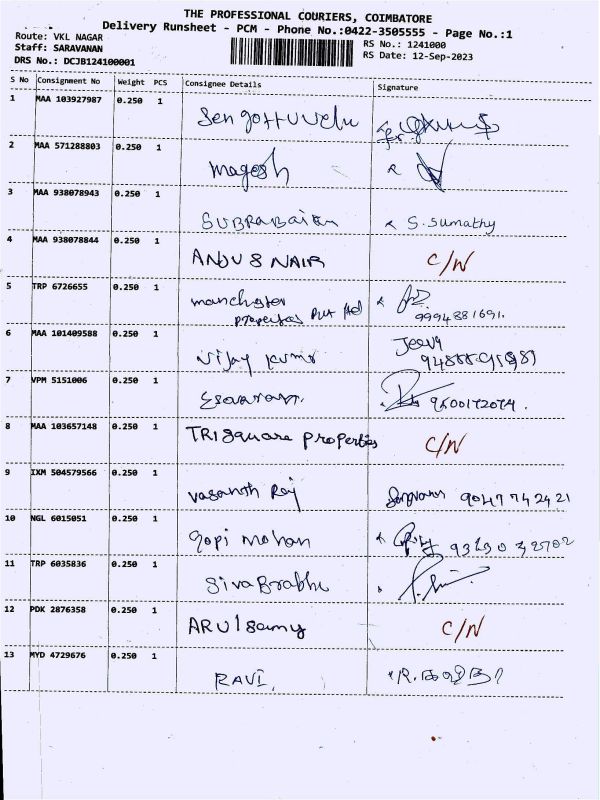 THE PROFESSIONAL COURIERS, COIMBATORE
Delivery Runsheet - PCM - Phone No.:0422-3505555 - Page No.:1
Route: VKL NAGAR RS No.: 1241000
Staff: SARAVANAN RS Date: 12-Sep-2023
DRS No.: DCJB124100001
S No Consignment No Weight PCS Consignee Details Signature
1 MAA 103927987 0.250 1 Sengottuvelu
2 MAA 571288803 0.250 1 Magesh
3 MAA 938078943 0.250 1 SUBRABAIAN S. Sumathy
4 MAA 938078844 0.250 1 ANDU 8 NAIR C/N
5 TRP 6726655 0.250 1 manchester
properties Pvt ltd 9994881691.
6 MAA 101409588 0.250 1 Vijay Kumr Jeeva
7 VPM 5151006 0.250 1 Esavaran. 9500172074.
8 MAA 103657148 0.250 1 TRISquare properties C/N
9 IXM 504579566 0.250 1 Vasanth Raj 9047742421
10 NGL 6015051 0.250 1 Gopi mohan
11 TRP 6035836 0.250 1 SivaPrabhu
12 PDK 2876358 0.250 1 ARUlSamy C/N
13 MYD 4729676 0.250 1 RAVI,